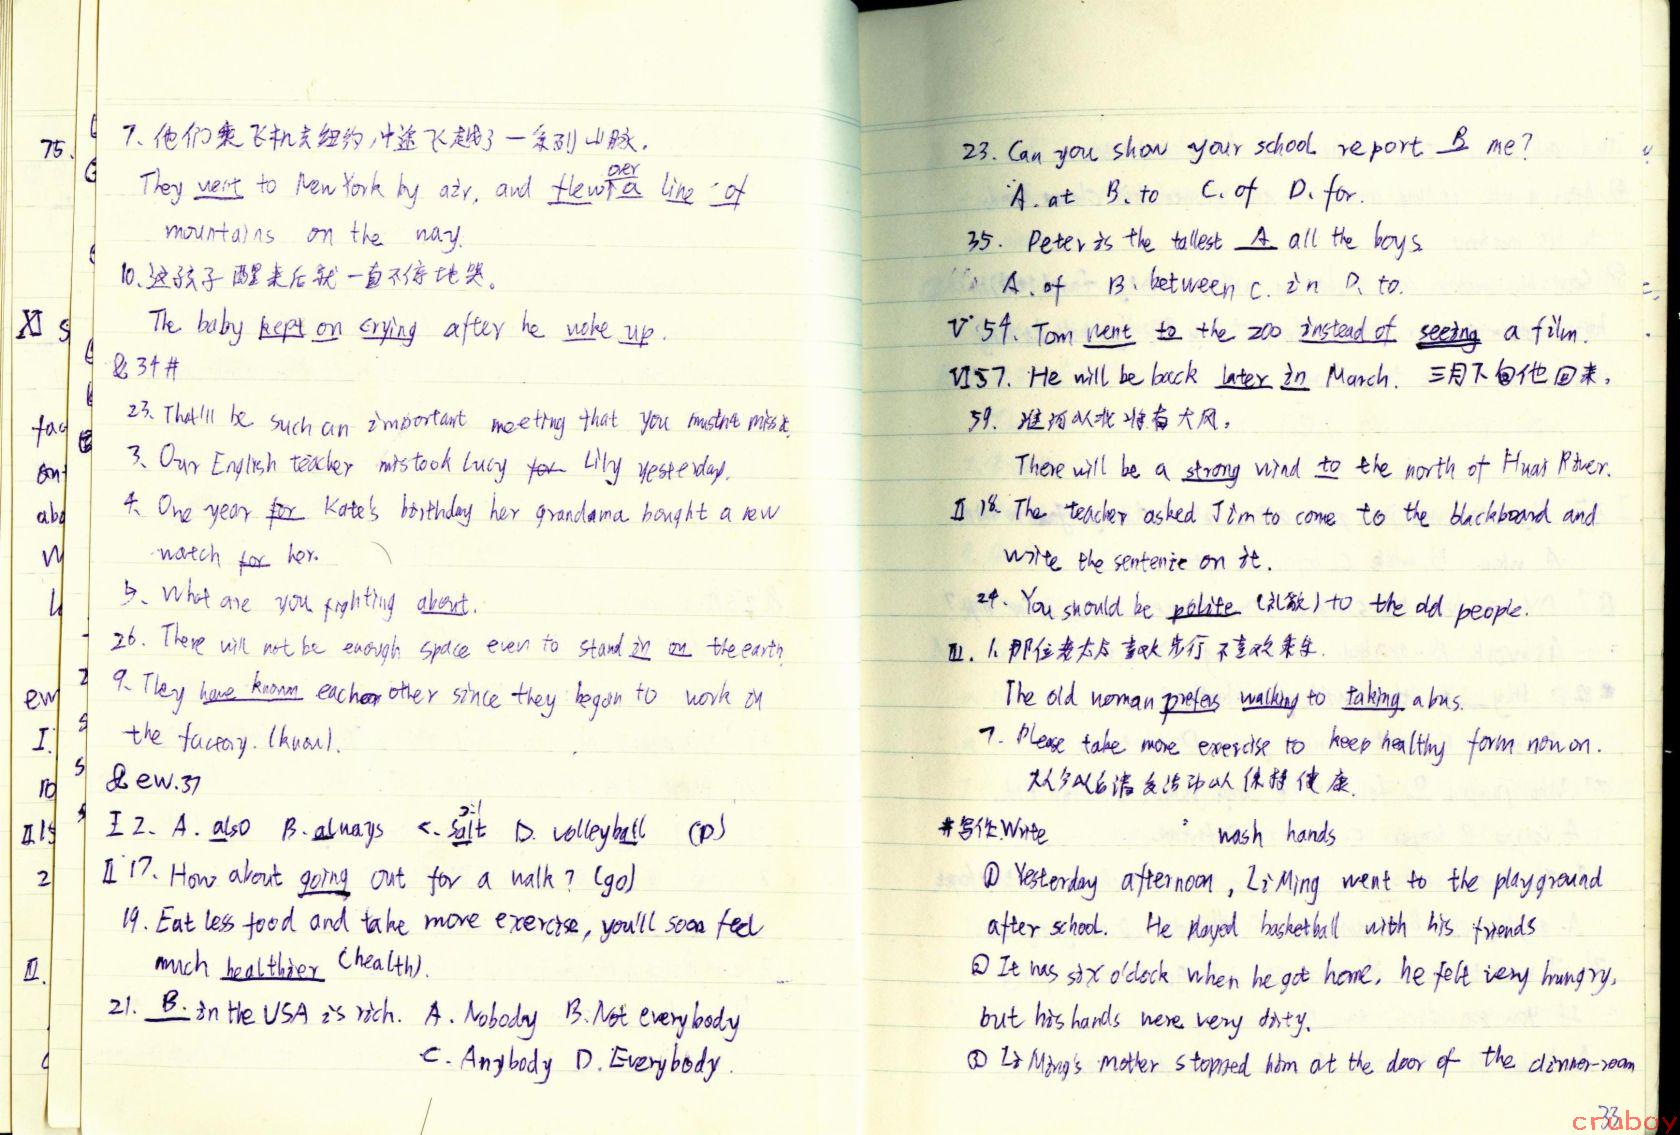 7. 他们乘飞机去纽约,中途飞越了一系列山脉.
They went to New York by air, and flew over a line of
mountains on the way.
10. 这孩子醒来后就一直不停地哭。
The baby kept on crying after he woke up.
& 34 #
23. That'll be such an important meeting that you mustn't miss it.
3. Our English teacher mistook Lucy for Lily yesterday.
4. One year for Kate's birthday her grandama bought a new
watch for her.
5. What are you fighting about.
26. There will not be enough space even to stand in on the earth
9. They have known each other since they began to work in
the factory. (know).
& ew.37
I 2. A. also B. always C. salt D. volleyball (D)
II 17. How about going out for a walk? (go)
19. Eat less food and take more exercise, you'll soon feel
much healthier (health).
21. B. in the USA is rich. A. Nobody B. Not everybody
C. Anybody D. Everybody.
23. Can you show your school report B me?
A. at B. to C. of D. for.
35. Peter is the tallest A all the boys
A. of B. between C. in D. to.
V 54. Tom went to the zoo instead of seeing a film.
VI 57. He will be back later in March. 三月下旬他回来.
59. 淮河以北将有大风.
There will be a strong wind to the north of Huai River.
II 18. The teacher asked Jim to come to the blackboard and
write the sentence on it.
24. You should be polite (礼貌) to the old people.
III. 1. 那位老太太喜欢步行不喜欢乘车.
The old woman prefers walking to taking a bus.
7. Please take more exercise to keep healthy form now on.
从今以后请多活动以保持健康.
#写作.Write wash hands
① Yesterday afternoon, Li Ming went to the playground
after school. He played basketball with his friends
② It was six o'clock when he got home, he felt very hungry,
but his hands were very dirty.
③ Li Ming's mother stopped him at the door of the dinner-room
33
cruboy